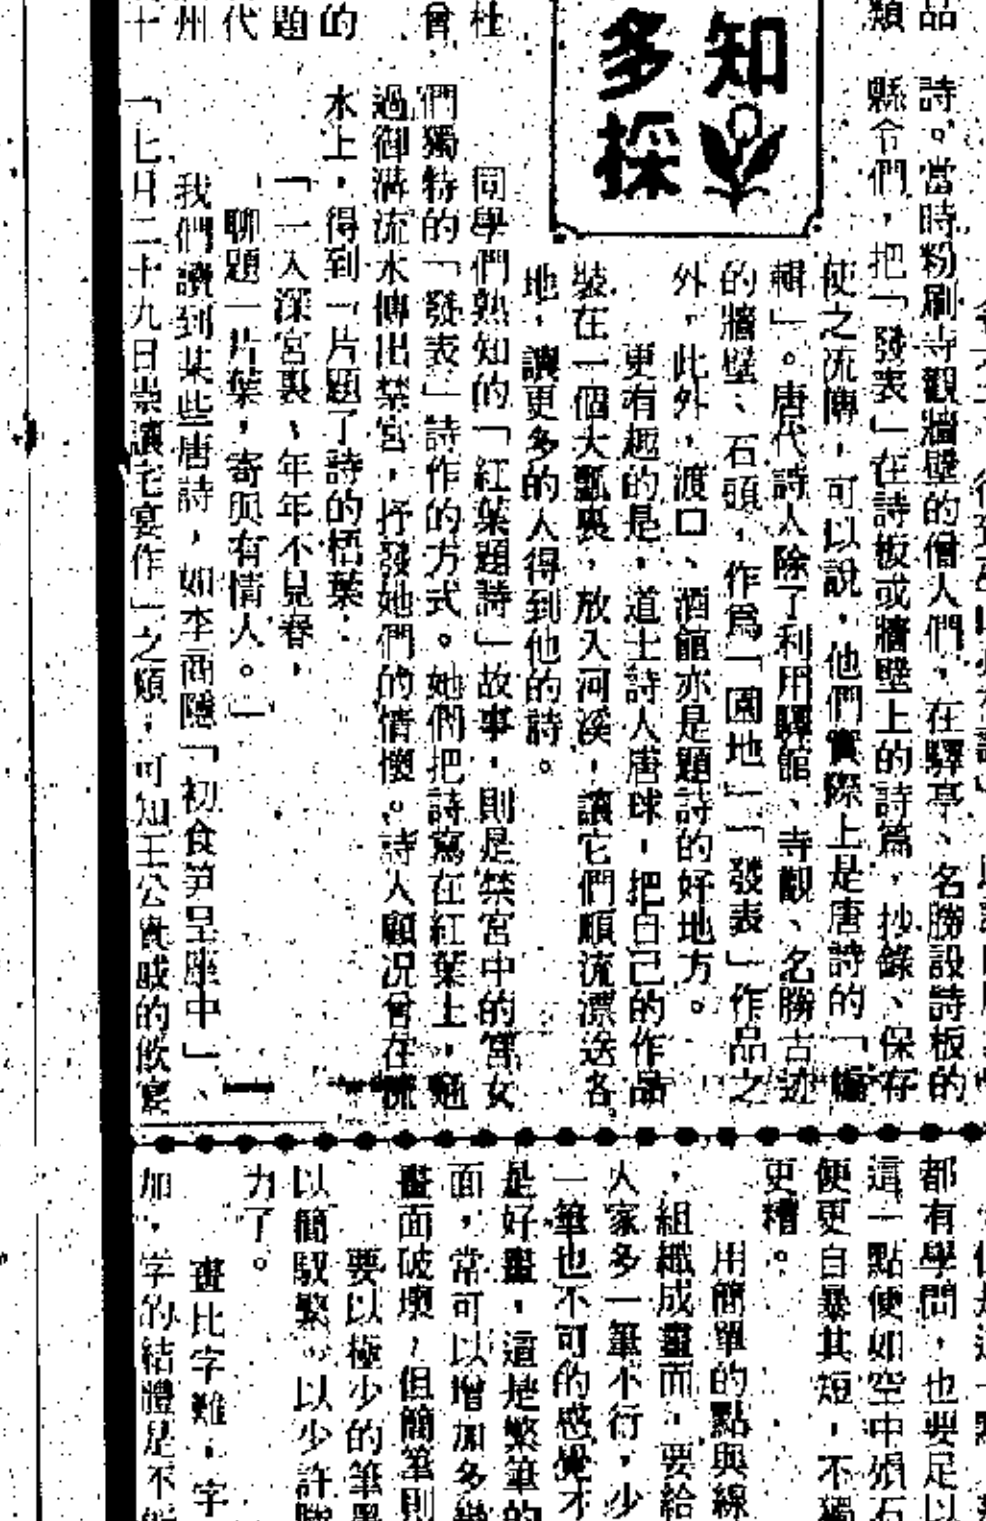 知多採
品
詩。當時粉刷寺觀牆壁的僧人們,在驛亭、名勝設詩板的
類
縣令們,把「發表」在詩板或牆壁上的詩篇,抄錄、保存
使之流傳,可以說,他們實際上是唐詩的「編
輯」。唐代詩人除了利用驛館、寺觀、名勝古迹
的牆壁、石頭,作為「園地」「發表」作品之
外,此外,渡口、酒館亦是題詩的好地方。
更有趣的是,道士詩人唐球,把自己的作品
裝在一個大瓢裏,放入河溪,讓它們順流漂送各
地,讓更多的人得到他的詩。
杜
同學們熟知的「紅葉題詩」故事,則是禁宮中的宮女
會,
們獨特的「發表」詩作的方式。她們把詩寫在紅葉上,通
過御溝流水傳出禁宮,抒發她們的情懷。詩人顧况曾在流
的
水上,得到一片題了詩的梧葉:
題
「一入深宮裏、年年不見春,
代
聊題一片葉,寄與有情人。」
州
我們讀到某些唐詩,如李商隱「初食笋呈座中」、
十
「七月二十九日崇讓宅宴作」之類,可知王公貴戚的飲宴
都有學問,也要足以
這一點便如空中殞石
便更自暴其短,不獨
更糟。
用簡單的點與線
,組織成畫面,要給
人家多一筆不行,少
一筆也不可的感覺才
是好畫,這是繁筆的
面,常可以增加多變
畫面破壞,但簡筆則
要以極少的筆墨
以簡馭繁。以少許勝
力了。
畫比字難;字
加,字的結體是不能